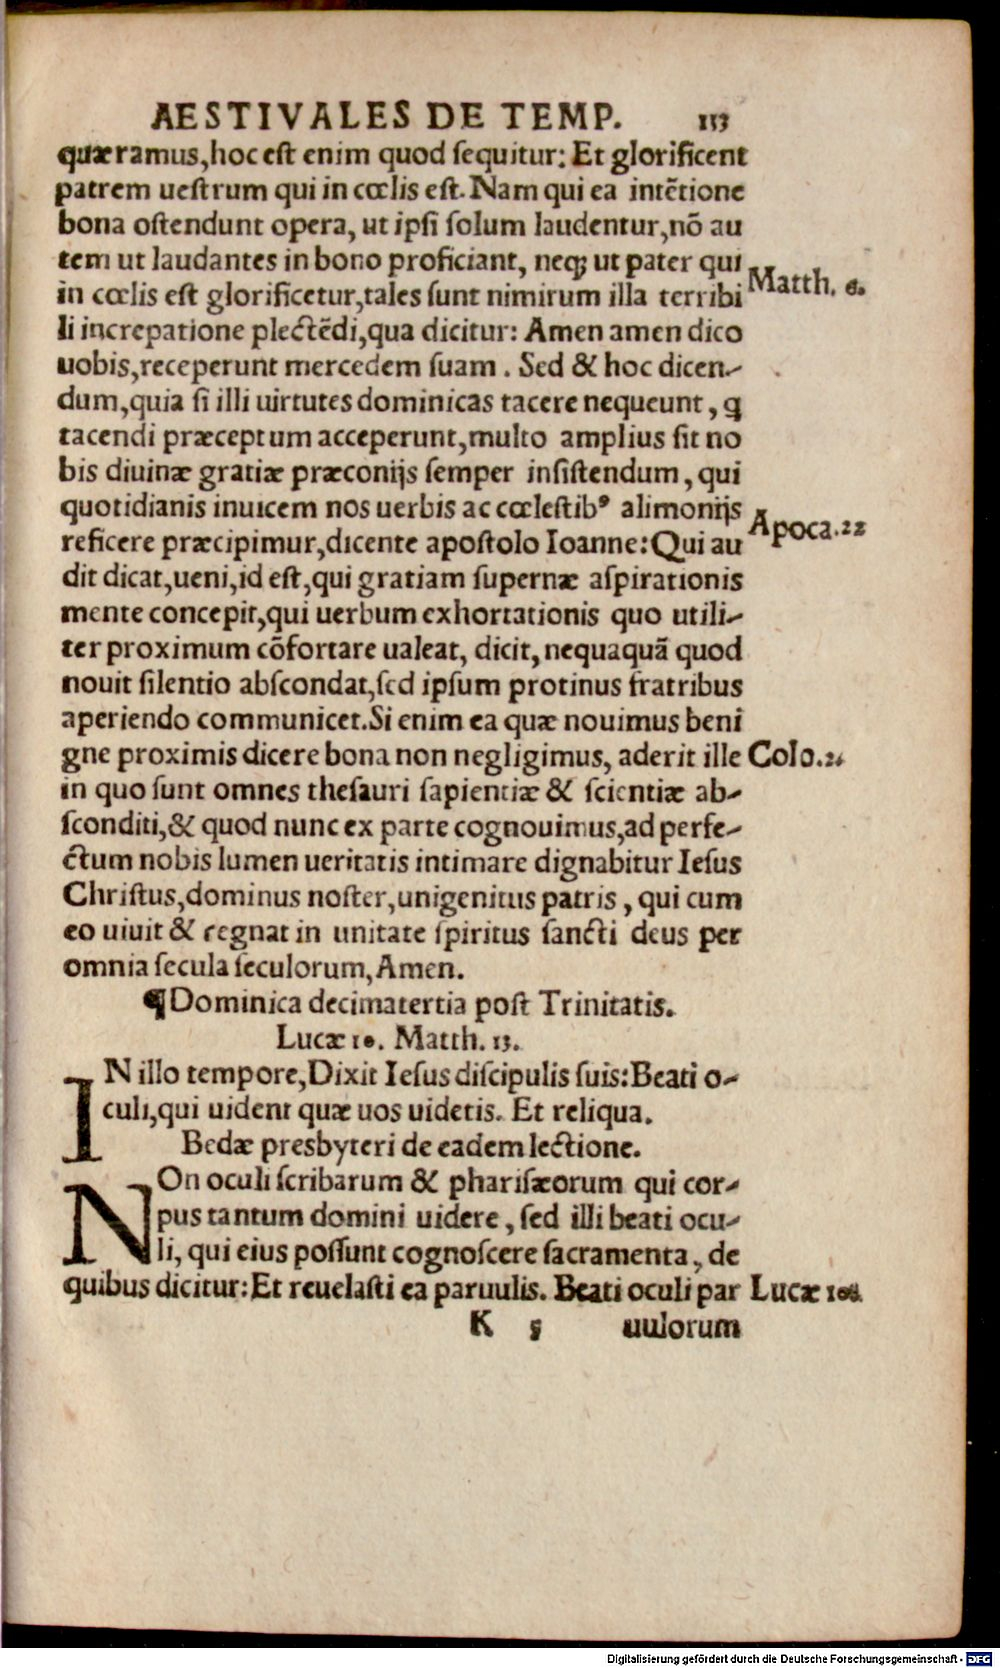 AESTIVALES DE TEMP. 153
quæramus, hoc est enim quod sequitur: Et glorificent
patrem uestrum qui in cœlis est. Nam qui ea intẽtione
bona ostendunt opera, ut ipsi solum laudentur, nõ au
tem ut laudantes in bono proficiant, neq; ut pater qui
in cœlis est glorificetur, tales sunt nimirum illa terribi
Matth. 6.
li increpatione plectẽdi, qua dicitur: Amen amen dico
uobis, receperunt mercedem suam. Sed & hoc dicen-
dum, quia si illi uirtutes dominicas tacere nequeunt, ꝗ
tacendi præceptum acceperunt, multo amplius sit no
bis diuinæ gratiæ præconijs semper insistendum, qui
quotidianis inuicem nos uerbis ac cœlestibꝰ alimonijs
Apoca. 22
reficere præcipimur, dicente apostolo Ioanne: Qui au
dit dicat, ueni, id est, qui gratiam supernæ aspirationis
mente concepit, qui uerbum exhortationis quo utili-
ter proximum cõfortare ualeat, dicit, nequaquã quod
nouit silentio abscondat, sed ipsum protinus fratribus
aperiendo communicet. Si enim ea quæ nouimus beni
gne proximis dicere bona non negligimus, aderit ille
Colo. 2.
in quo sunt omnes thesauri sapientiæ & scientiæ ab-
sconditi, & quod nunc ex parte cognouimus, ad perfe-
ctum nobis lumen ueritatis intimare dignabitur Iesus
Christus, dominus noster, unigenitus patris, qui cum
eo uiuit & regnat in unitate spiritus sancti deus per
omnia secula seculorum, Amen.
¶ Dominica decimatertia post Trinitatis.
Lucæ 10. Matth. 13.
IN illo tempore, Dixit Iesus discipulis suis: Beati o-
culi, qui uident quæ uos uidetis. Et reliqua.
Bedæ presbyteri de eadem lectione.
NOn oculi scribarum & pharisæorum qui cor-
pus tantum domini uidere, sed illi beati ocu-
li, qui eius possunt cognoscere sacramenta, de
quibus dicitur: Et reuelasti ea paruulis. Beati oculi par
Lucæ 10.
K 5 uulorum
Digitalisierung gefördert durch die Deutsche Forschungsgemeinschaft - DFG